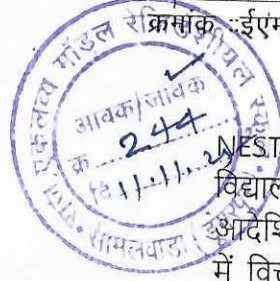 क्रमांक :ईएम
एकलव्य मॉडल रेसिडेंशियल स्कूल
आवक/जावक
क्र. 244
दि 11.11.
सामलवाडा
NEST
विद्याल
आदेशि
में विच